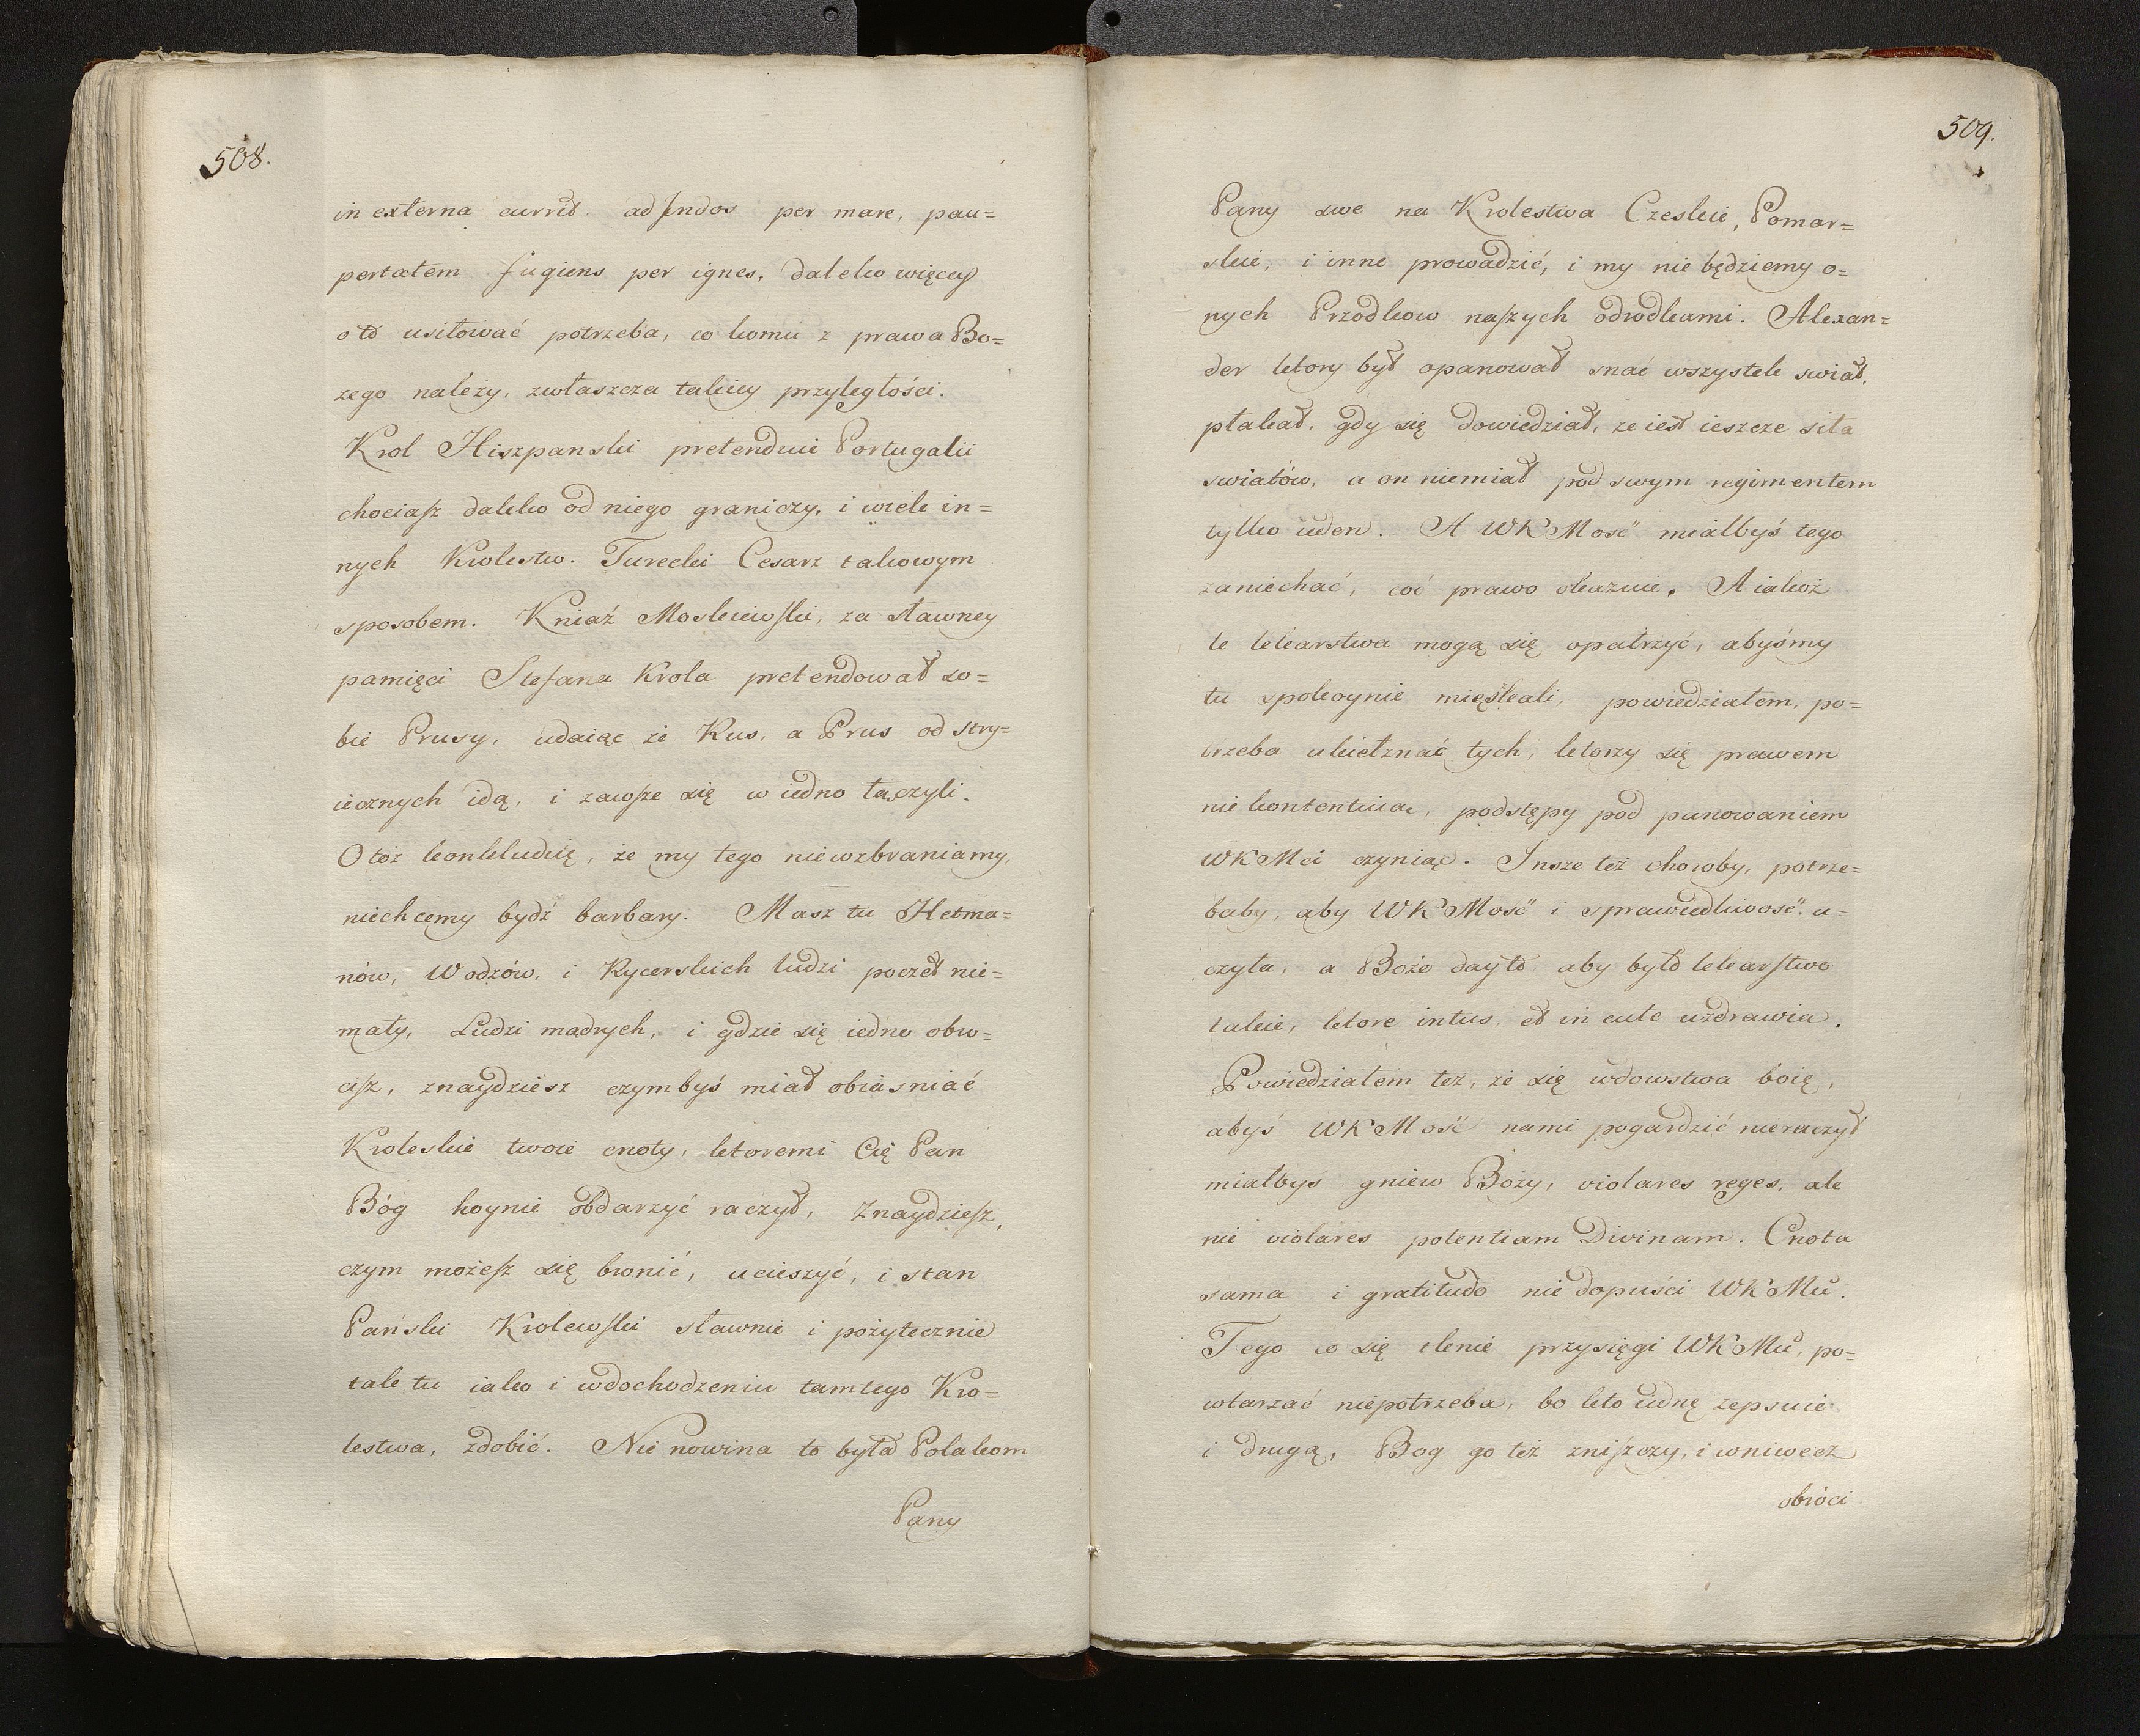 508.
in externa currit. ad Indos per mare, pau=
pertatem fugiens per ignes, daleko więcey
o to usiłować potrzeba, co komu z prawa Bo=
zego należy, zwłaszcza takiey przyległości.
Krol Hiszpanski pretenduie Portugalii
chociasz daleko od niego graniczy, i wiele in=
nych Krolestw. Turecki Cesarz takowym
sposobem. Kniaź Moskiewski, za sławney
pamięci Stefana Krola pretendował so=
bie Prusy, udaiąc że Rus, a Prus od stry=
iecznych idą, i zawsze się w iedno łączyli.
Otóż konkluduię, że my tego niewzbraniamy,
niechcemy bydź barbary. Masz tu Hetma=
nów, Wodzów, i Rycerskich ludzi poczet nie=
mały, Ludzi mądrych, i gdzie się iedno obro=
cisz, znaydziesz czymbyś miał obiasniać
Kroleskie twoie cnoty, ktoremi Cię Pan
Bóg hoynie obdarzyć raczył, Znaydziesz,
czym możesz się bronić, ucieszyć, i stan
Pański Krolewski sławnie i pożytecznie
tak tu iako i wdochodzeniu tamtego Kro=
lestwa, zdobić. Nie nowina to była Polakom
Pany
509.
Pany swe na Krolestwa Czeskie, Pomor=
skie, i inne prowadzić, i my nie będziemy o=
nych Przodkow naszych odrodkami. Alexan=
der ktory był opanował snać wszystek swiat,
płakał, gdy się dowiedział, ze iest ieszcze siła
swiatów, a on niemiał pod swym regimentem
tylko ieden. A WKMość miałbyś tego
zaniechać, coć prawo okazuie. A iakoż
te lekarstwa mogą się opatrzyć, abyśmy
tu spokoynie mięszkali, powiedziałem, po=
trzeba ukiełznać tych, ktorzy się prawem
nie kontentuią, podstępy pod panowaniem
WKMci czyniąc. Insze też choroby, potrze=
baby, aby WKMość i sprawiedliwość u=
czyła, a Boże dayto aby było lekarstwo
takie, ktore intus, et in cute uzdrawia.
Powiedziałem też, że się wdowstwa boię,
abyś WKMość nami pogardzić nieraczył
miałbyś gniew Boży, violares reges, ale
nie violares potentiam Divinam. Cnota
sama i gratitudo nie dopuści WKMu.
Tego co się tknie przysięgi WKMu, po=
wtarzać niepotrzeba, bo kto iednę zepsuie
i drugą, Bog go też zniszczy, i wniwecz
obróci